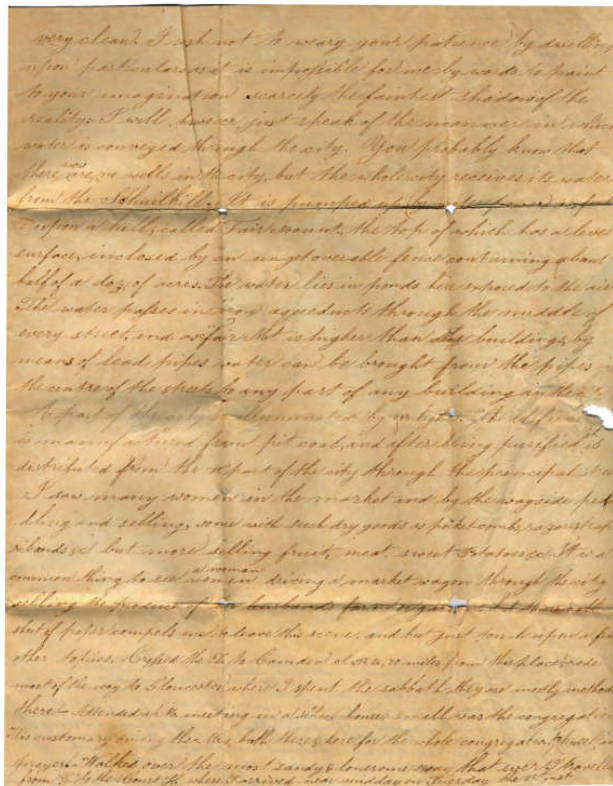 very clean. I wish not to weary your patience by dwelling
upon particulars as it is impossible for me by words to paint
to your imagination scarcely the faintest shadow of the
reality. I will however just speak of the manner in which
water is conveyed through the city. You probably know that
there are no wells in the city, but the whole city receives its water
from the Schuilkill. It is pumped up by
upon a hill, called Fairmount, the top of which has a level
surface, inclosed by an containing about
half of a doz. of acres. The water lies in ponds here exposed to the air
The water passes in iron aqueducts through the middle of
every street, and as fair Mt is higher than buildings, by
means of lead pipes water can be brought from the pipes
the centre of the streets to any part of any building in the
A part of the city is illuminated by
is manufactured from pit coal, and after being purified is
distributed from the part of the city through the principal
I saw many women in the market and by the wayside ped
dling and selling, some with such dry goods as pocket combs,
ribands &c but more selling fruit, meat, sweet potatoes &c. It is a
common thing to see a woman driving a market wagon through the city
selling the produce of husbands farm or garden,
sheet of paper compels me to leave this scene, and but just touch upon a few
other topics. Crossed the D. to Camden miles from this place rode
most of the way to Gloucester where I spent the sabbath, they are mostly
there. Attended a meeting in a school house small was the congregation
Tis customary among the both there & here for the whole congregation
prayer. Walked over the most sandy & lonesome way that ever I
from to the Court H. where I arrived near midday on Tuesday the inst